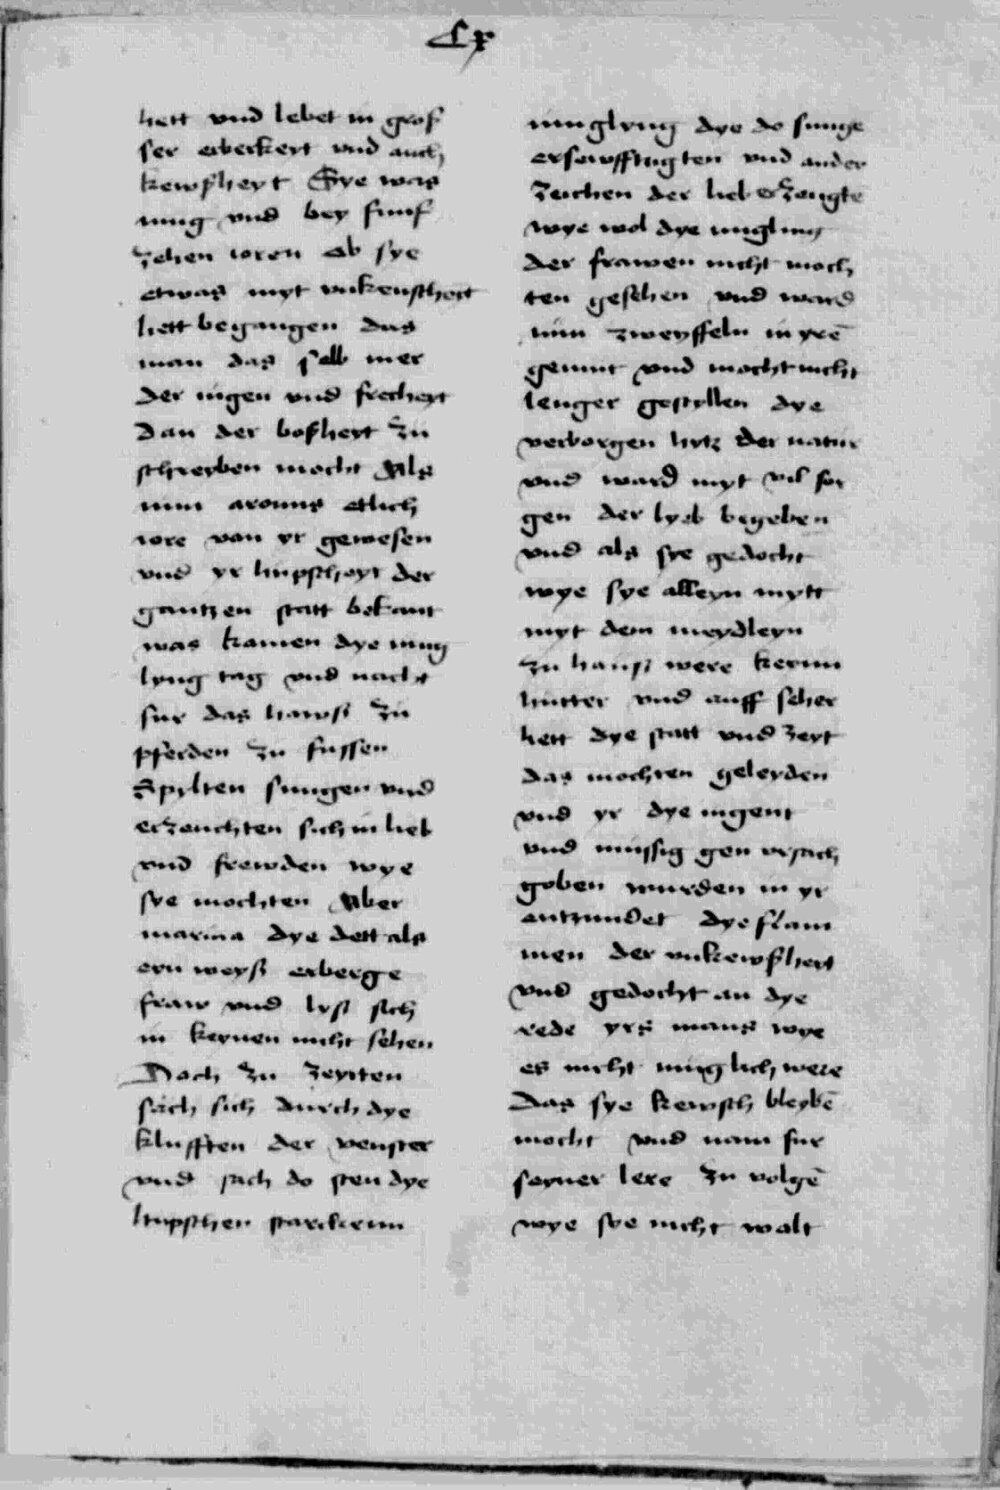 Cx
hett vnd lebet in gros
ser erberkeyt vnd auch
kewsheyt Sye was
iung vnd bey funf
zehen ioren Ob sye
etwas myt vnkenscheit
hett begangen das
man das selb mer
der iugen vnd frecheyt
Dan der bosheyt zu
schreyben mocht Als
nun aronus etlich
iore van yr gewesen
vnd yr hupscheyt der
gantzen statt bekant
was kamen dye iung
lyng tag vnd nacht
fur das hawsz zu
pferden zu fussen
Spylten sungen vnd
erzaichten sich in lieb
vnd frewden wye
sye mochten Aber
marina dye dett als
eyn weysz erberge
fraw vnd lysz sich
in keynen nicht sehen
Doch zu zeytten
sach sich durch dye
klufften der venster
vnd sach do sten dye
hupschen starcken
iunglyng dye do sunge
ersewfftzgten vnd ander
zeichen der lieb erzeugtē
wye wol dye iungling
der frawen nicht moch
ten gesehen vnd ward
nun zweyffeln in yrē
gemut vnd mocht nicht
lenger gestyllen dye
verborgen hytz der natur
vnd ward myt vil sor
gen der lyeb begeben
vnd als sye gedocht
wye sye alleyn mytt
myt dem meydleyn
zu hausz were keynn
hutter vnd auff seher
hett dye statt vnd zeyt
das mochten geleyden
vnd yr dye iugent
vnd mussig gen vrsach
goben wurden in yr
entzundet dye flam
men der vnkewsheyt
vnd gedocht an dye
rede yrs mans wye
es nicht muglich were
Das sye kewsch bleybē
mocht vnd nam fur
seyner lere zu volgē
wye sye nicht walt